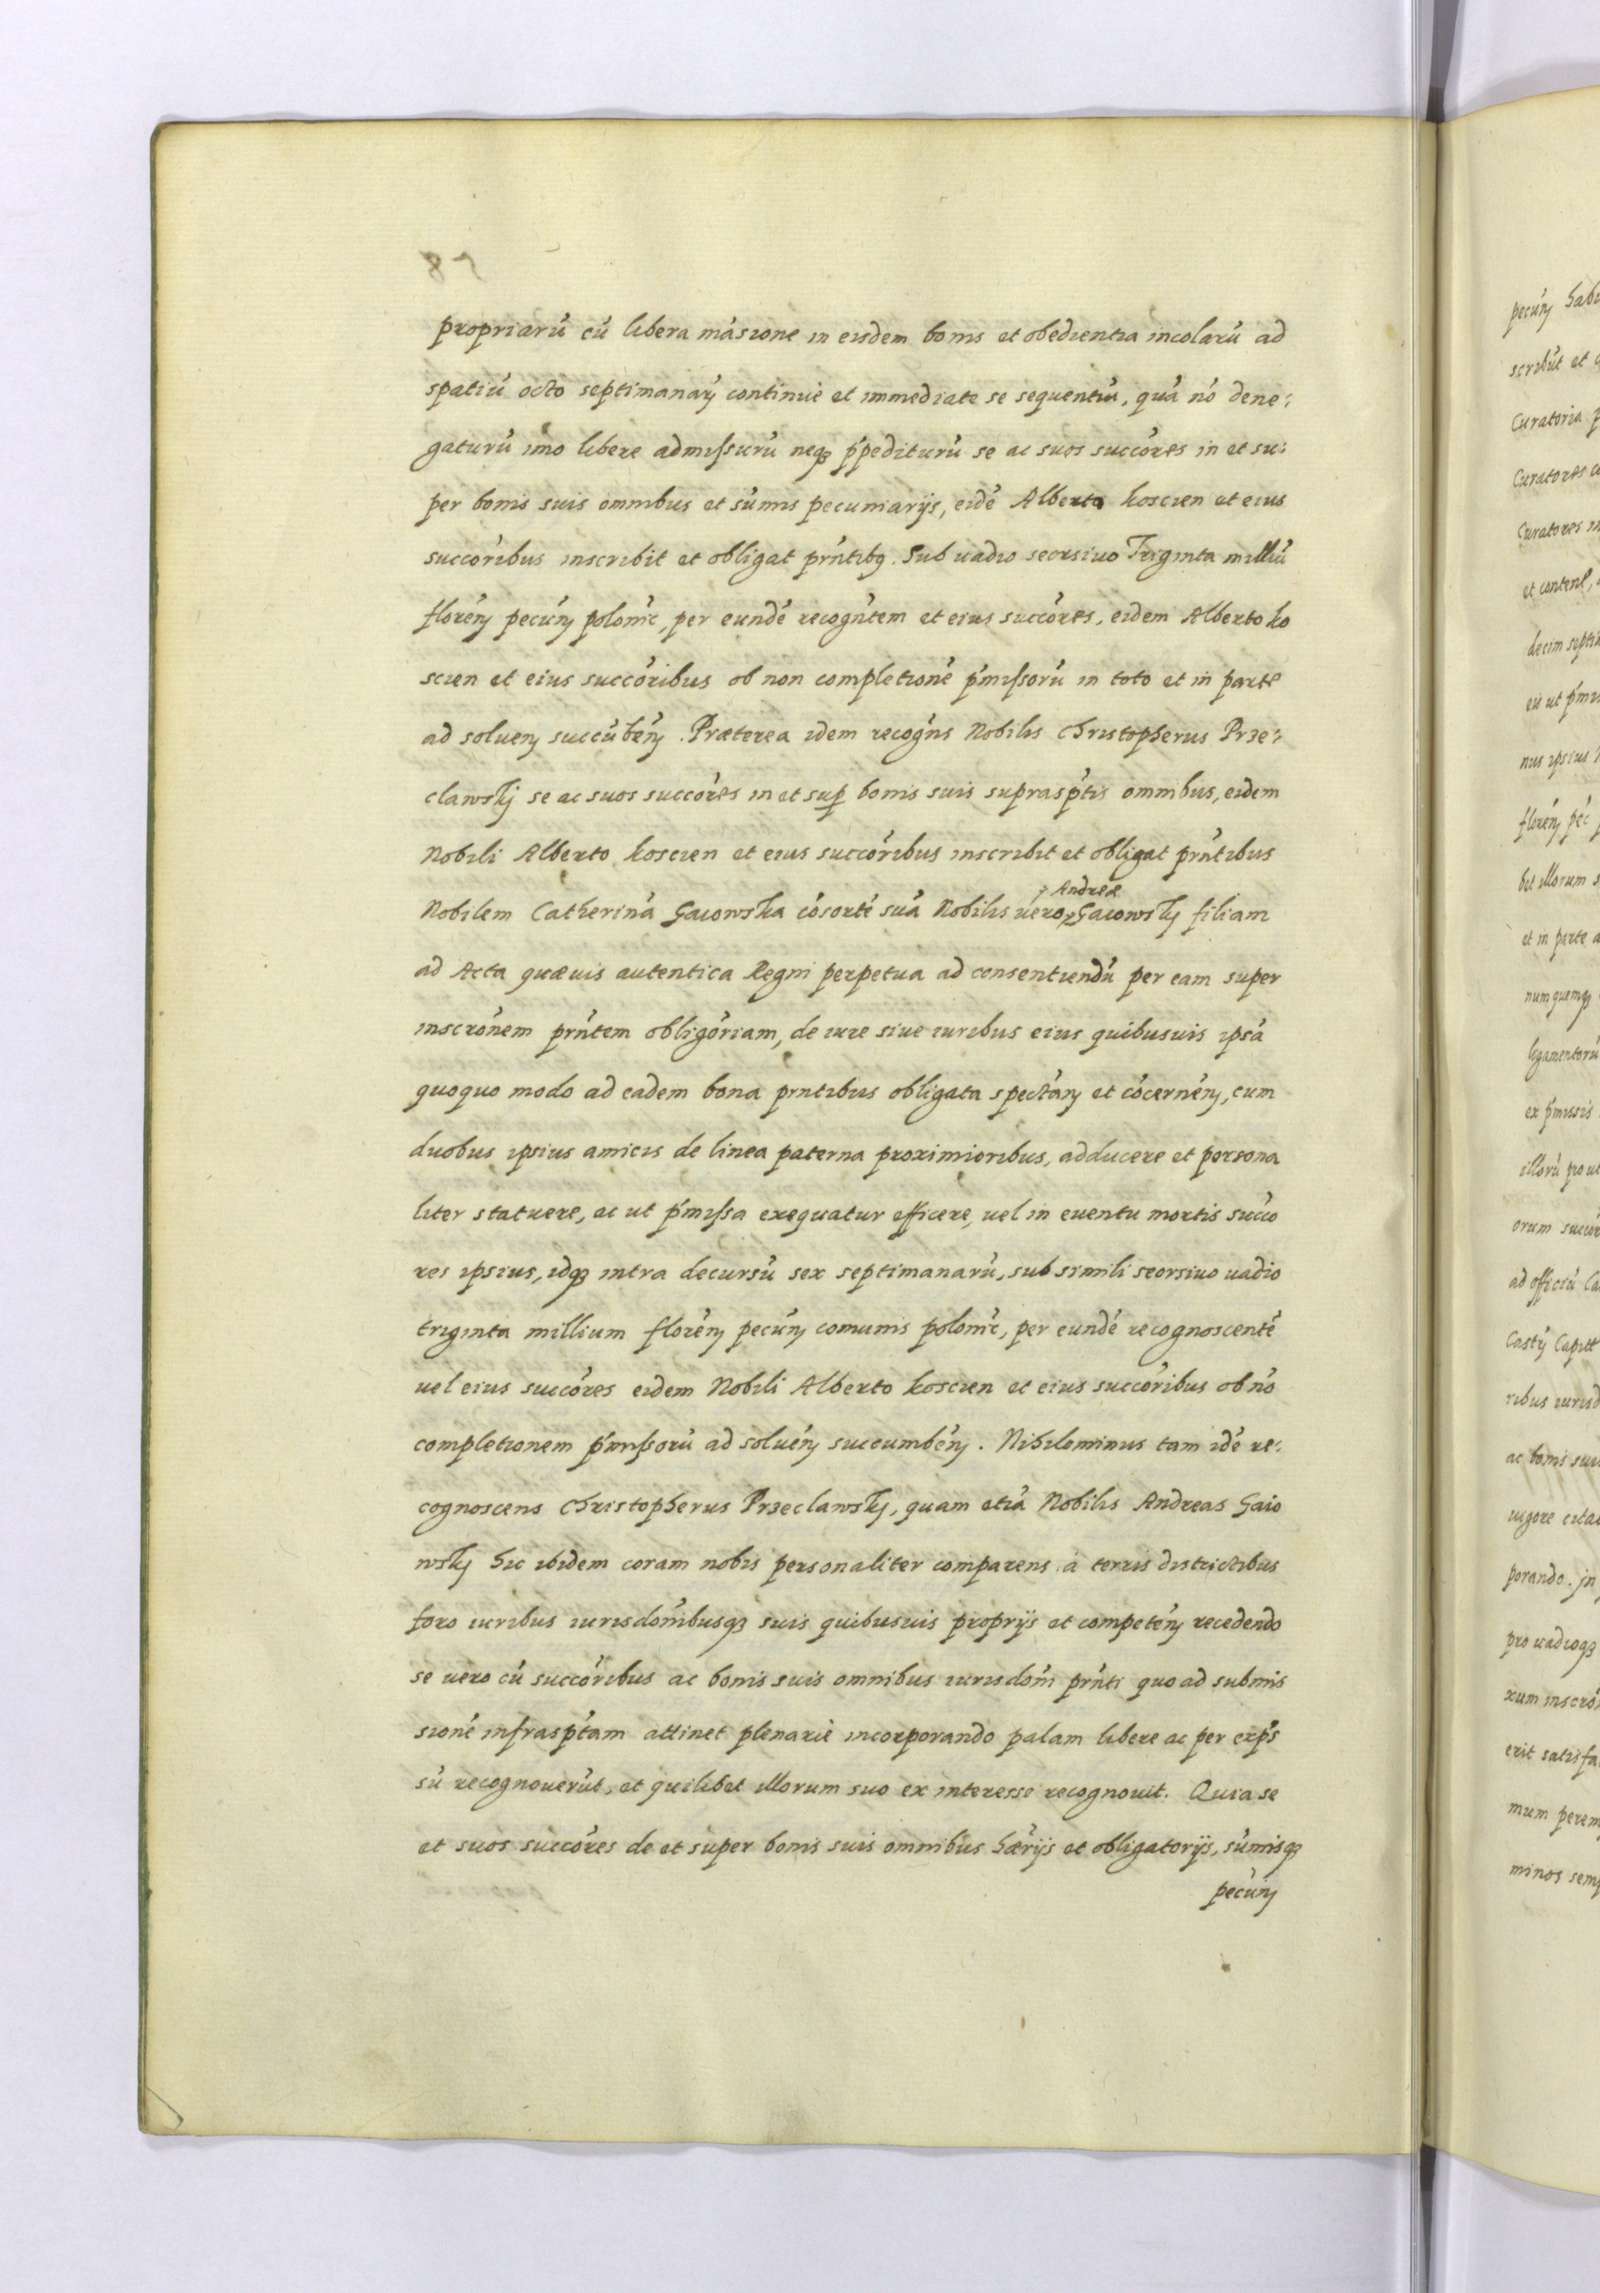 propriarú cú libera másione in eisdem bonis et obedientia incolarú ad
spatiú octo septimanarꝫ continuè et immediate se sequentiú, quá nó dene:
gaturú imo libere admissurú neqꝫ ṕpediturú se ac suos succóres in et su:
per bonis suis omnibus et súmis pecuniarijs, eidé Alberto Koscien et eius
succóribus inscribit et obligat prńtibꝫ. Sub vadio seorsivo Triginta milliú
florénꝫ pecúnꝫ poloníc, per eundé recogńtem et eius succóres, eidem Alberto Ko
scien et eius succóribus ob non completioné ṕmissorú in toto et in parte
ad soluenꝫ succúbénꝫ. Præterea idem recogńs Nobilis Christopherus Prze:
clawskj se ac suos succóres in et sup̱ bonis suis suprasṕtis omnibus, eidem
Nobili Alberto Koscien et eius succóribus inscribit et obligat prńtibus
Andreæ
Nobilem Catheriná Gaiowska cósorté suá Nobilis véro Gaiowskj filiam
ad Acta quævis autentica Regni perpetua ad consentiendú per eam super
inscrónem prńtem obligóriam, de iure sive iuribus eius quibusvis ipsá
quoquo modo ad eadem bona prntibus obligata spectánꝫ et cócernénꝫ, cum
duobus ipsius amicis de linea paterna proximioribus, adducere et persona
liter statuere, ac ut ṕmissa exequatur efficere, vel in eventu mortis succo
res ipsius, idqꝫ intra decursú sex septimanarú, sub simili seorsivo vadio
triginta millium florénꝫ pecúnꝫ comunis poloníc, per eundé recognoscenté
vel eius succóres eidem Nobili Alberto Koscien et eius succóribus ob nó
completionem ṕmissorú ad soluénꝫ succumbénꝫ. Nihilominus tam idé re:
cognoscens Christopherus Przeclawskj, quam etiá Nobilis Andreas Gaio
wskj hic ibidem coram nobis personaliter comparens à terris districtibus
foro iuribus iurisdoníbusqꝫ suis quibusvis proprijs et competénꝫ recedendo
se vero cú succóribus ac bonis suis omnibus iurisdoní prńti quo ad submis
sioné infrasṕtam attinet plenariè incorporando palam libere ac per exṕs
sú recognoverút, et quilibet illorum suo ex interesse recognovit. Quia se
et suos succóres de et super bonis suis omnibus hæríjs et obligatorijs, súmisqꝫ
pecúnꝫ